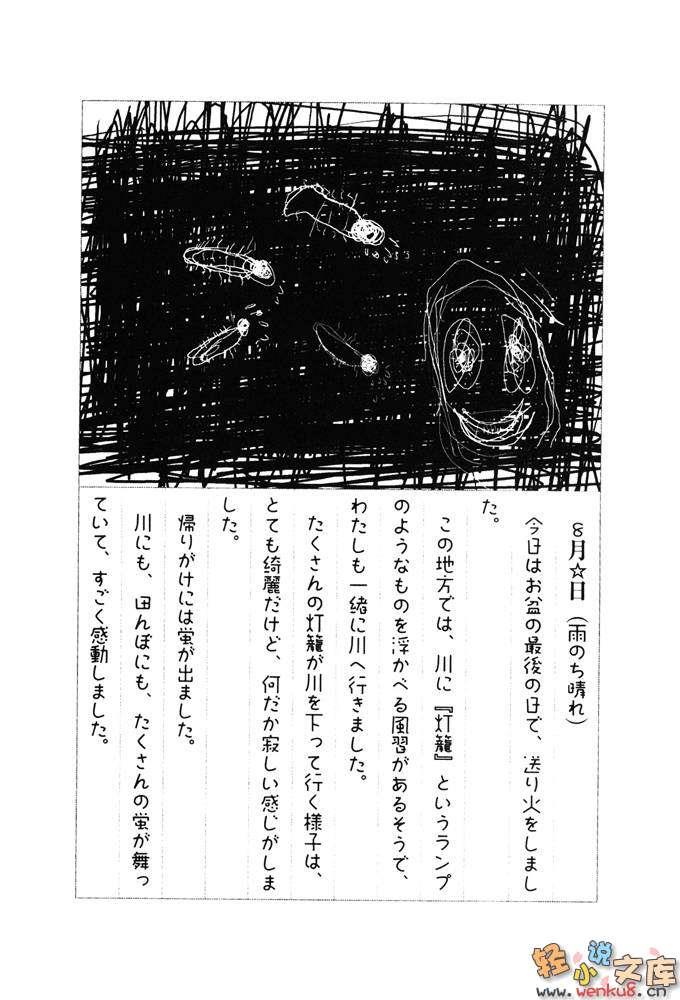 8月☆日（雨のち晴れ）
今日はお盆の最後の日で、送り火をしまし
た。
この地方では、川に『灯籠』というランプ
のようなものを浮かべる風習があるそうで、
わたしも一緒に川へ行きました。
たくさんの灯籠が川を下って行く様子は、
とても綺麗だけど、何だか寂しい感じがしま
した。
帰りがけには蛍が出ました。
川にも、田んぼにも、たくさんの蛍が舞っ
ていて、すごく感動しました。
轻小说文库
www.wenku8.cn